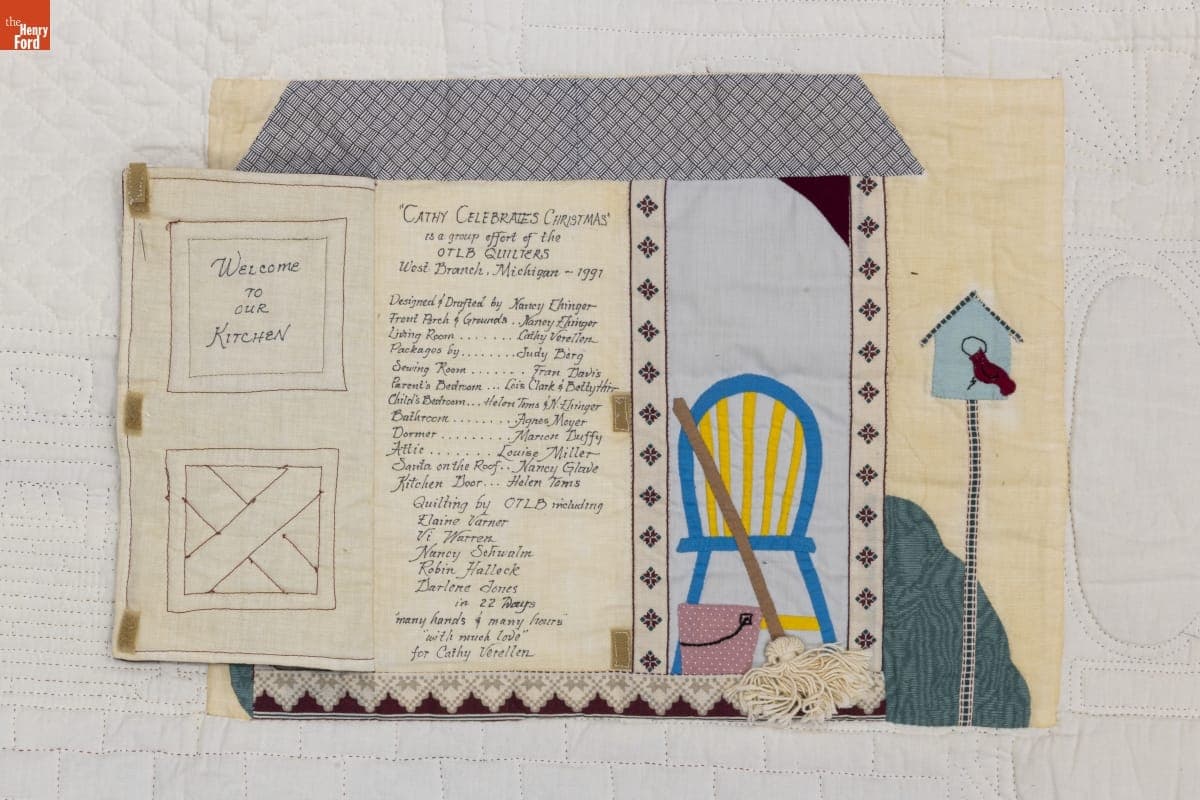 the
Henry
Ford
WELCOME
TO
OUR
KITCHEN
"CATHY CELEBRATES CHRISTMAS"
is a group effort of the
OTLB QUILTERS
West Branch, Michigan - 1991
Designed & Drafted by Nancy Ehinger
Front Porch & Grounds . Nancy Ehinger
Living Room ....... Cathy Verellen
Packages by........ Judy Berg
Sewing Room ....... Fran Davis
Parent's Bedroom ... Lois Clark & Betty
Child's Bedroom... Helen Toms & N. Ehinger
Bathroom ......... Agnes Meyer
Dormer .......... Marion Duffy
Attic ......... Louise Miller
Santa on the Roof.. Nancy Glave
Kitchen Door... Helen Toms
Quilting by OTLB including
Elaine Varner
Vi Warren
Nancy Schwalm
Robin Hallock
Darlene Jones
in 22 Days
"many hands & many hours"
"with much love"
for Cathy Verellen